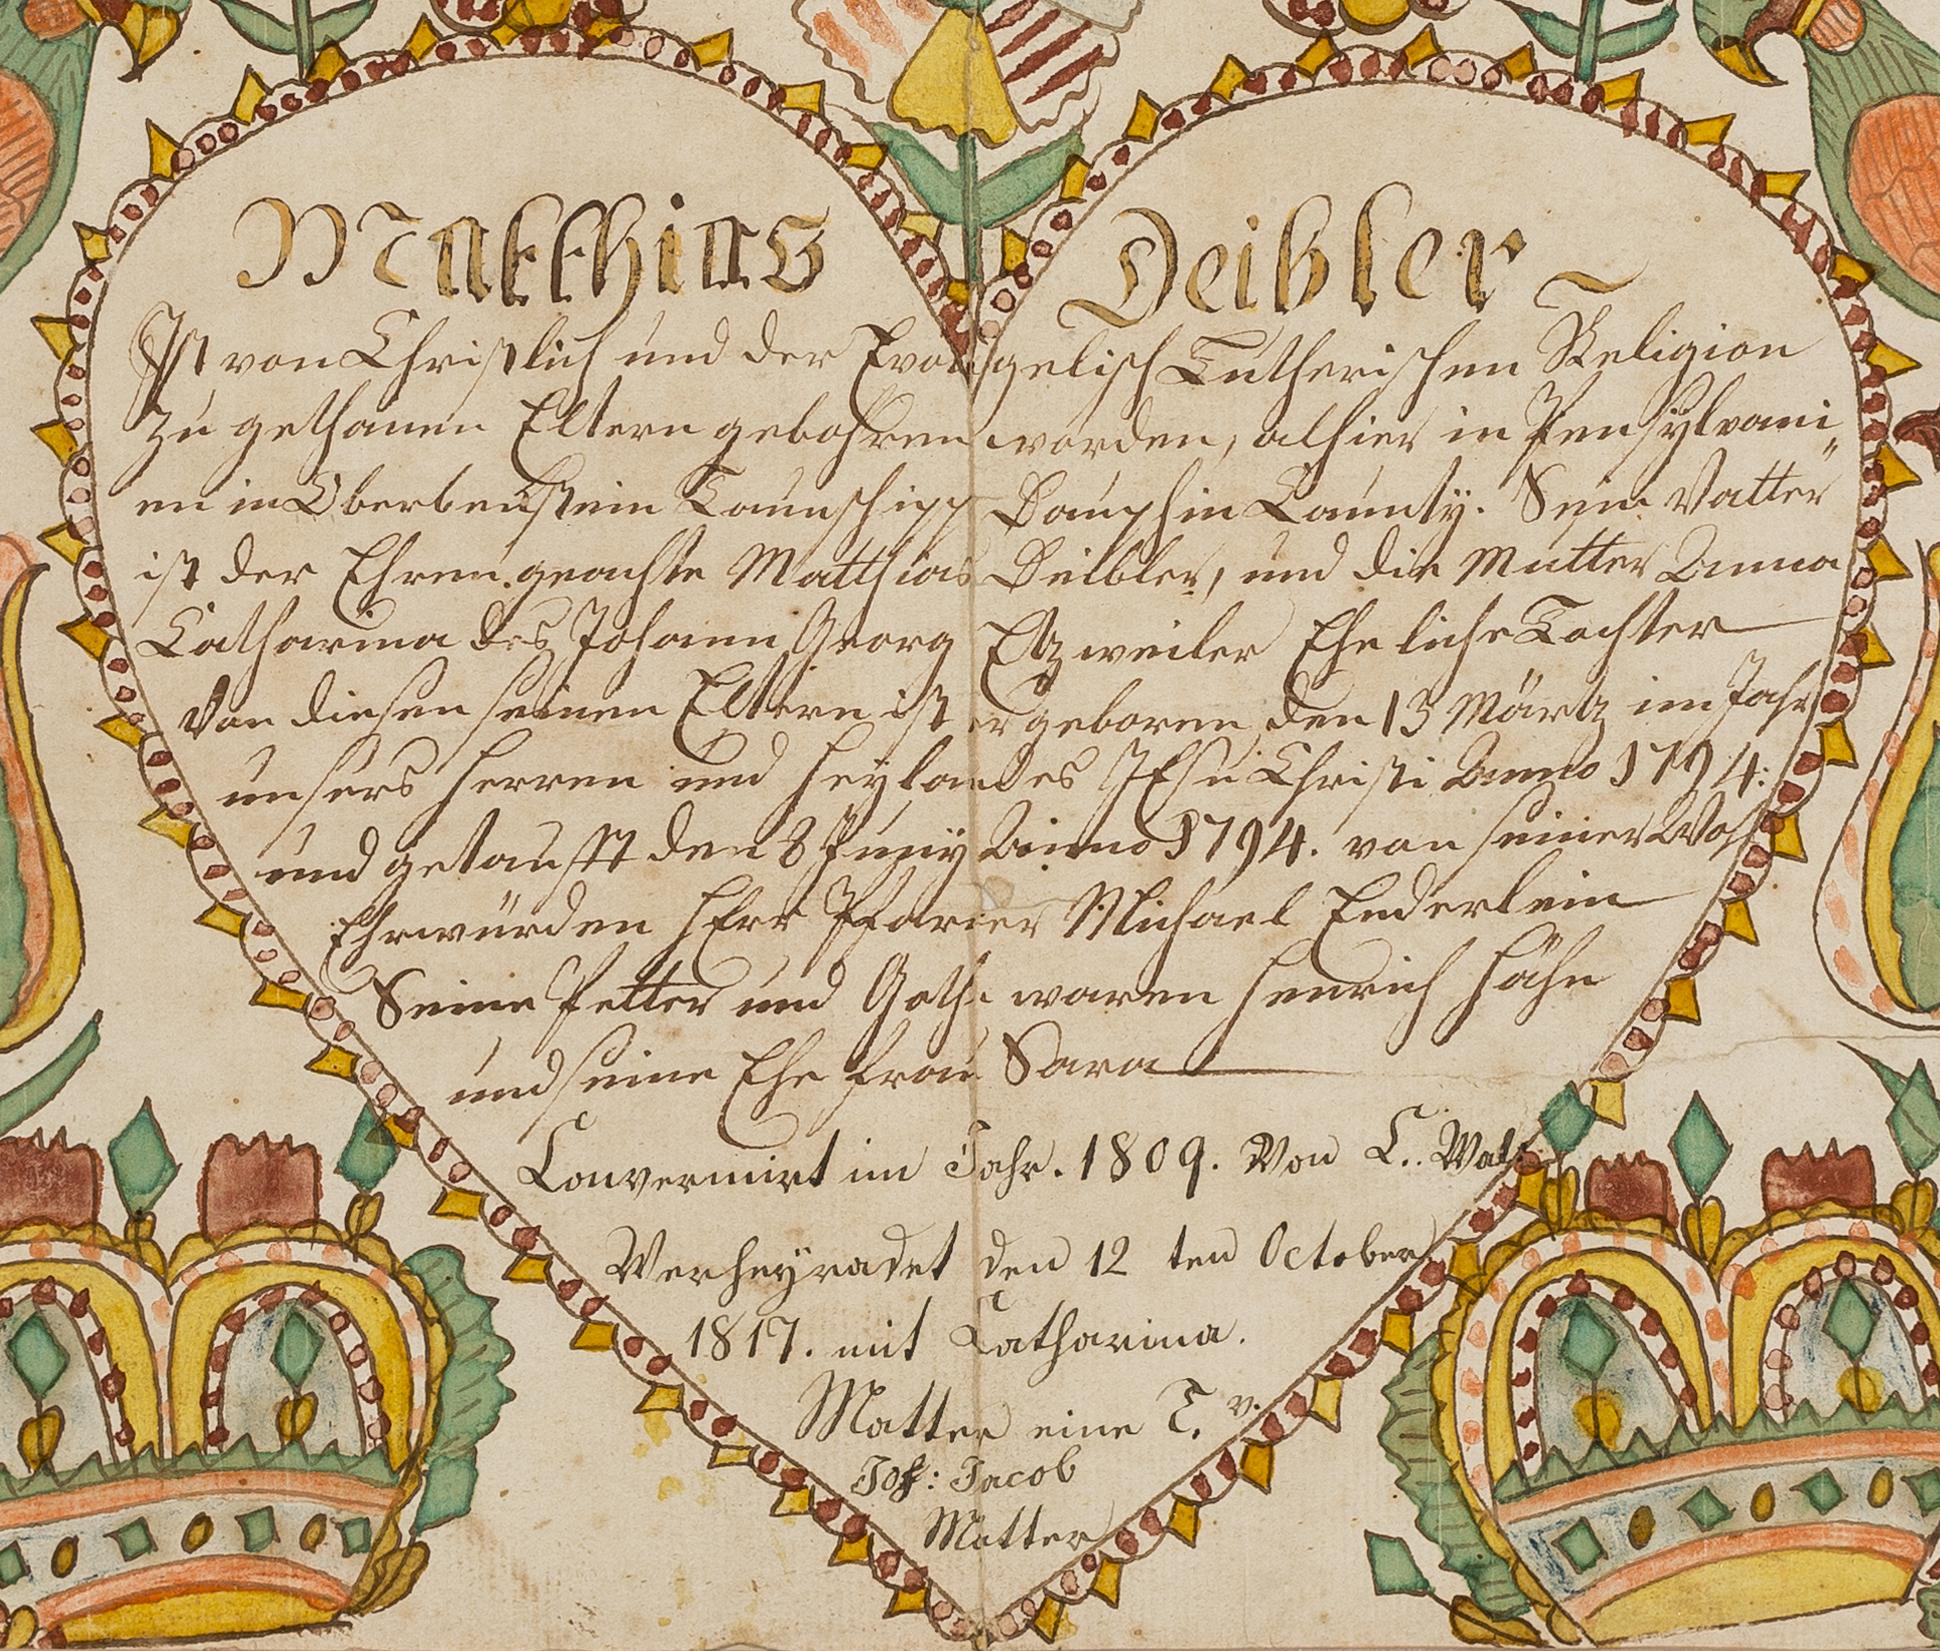 Matthias Deibler
Ist von Christlich und der Evangelisch Lutherischen Religion
zu gethanen Eltern gebohren worden, alhier in Pensylvani„
en in Oberbenstein Taunschipp Dauphin Caunty. Sein Vatter
ist der Ehren geachte Matthias Deibler, und die Mutter Anna
Catharina des Johann Georg Etzweiler Eheliche Tochter
Von diesen seinen Eltern ist er geboren den 13 Märtz im Jahr
unsers Herren und Heylandes JEsu Christi Anno 1794:
und getaufft den 8 Juny Anno 1794. von seiner Wohl
Ehrwürden HErr Pfarrer Michael Enderlein
Seine Petter und Gothe waren Henrich Hähn
und seine Ehe frau Sara
Convermirt im Jahr. 1809. Von C..
Verheyradet den 12 ten October
1817. mit Catharina.
Matter eine T. v.
Joh: Jacob
Matter